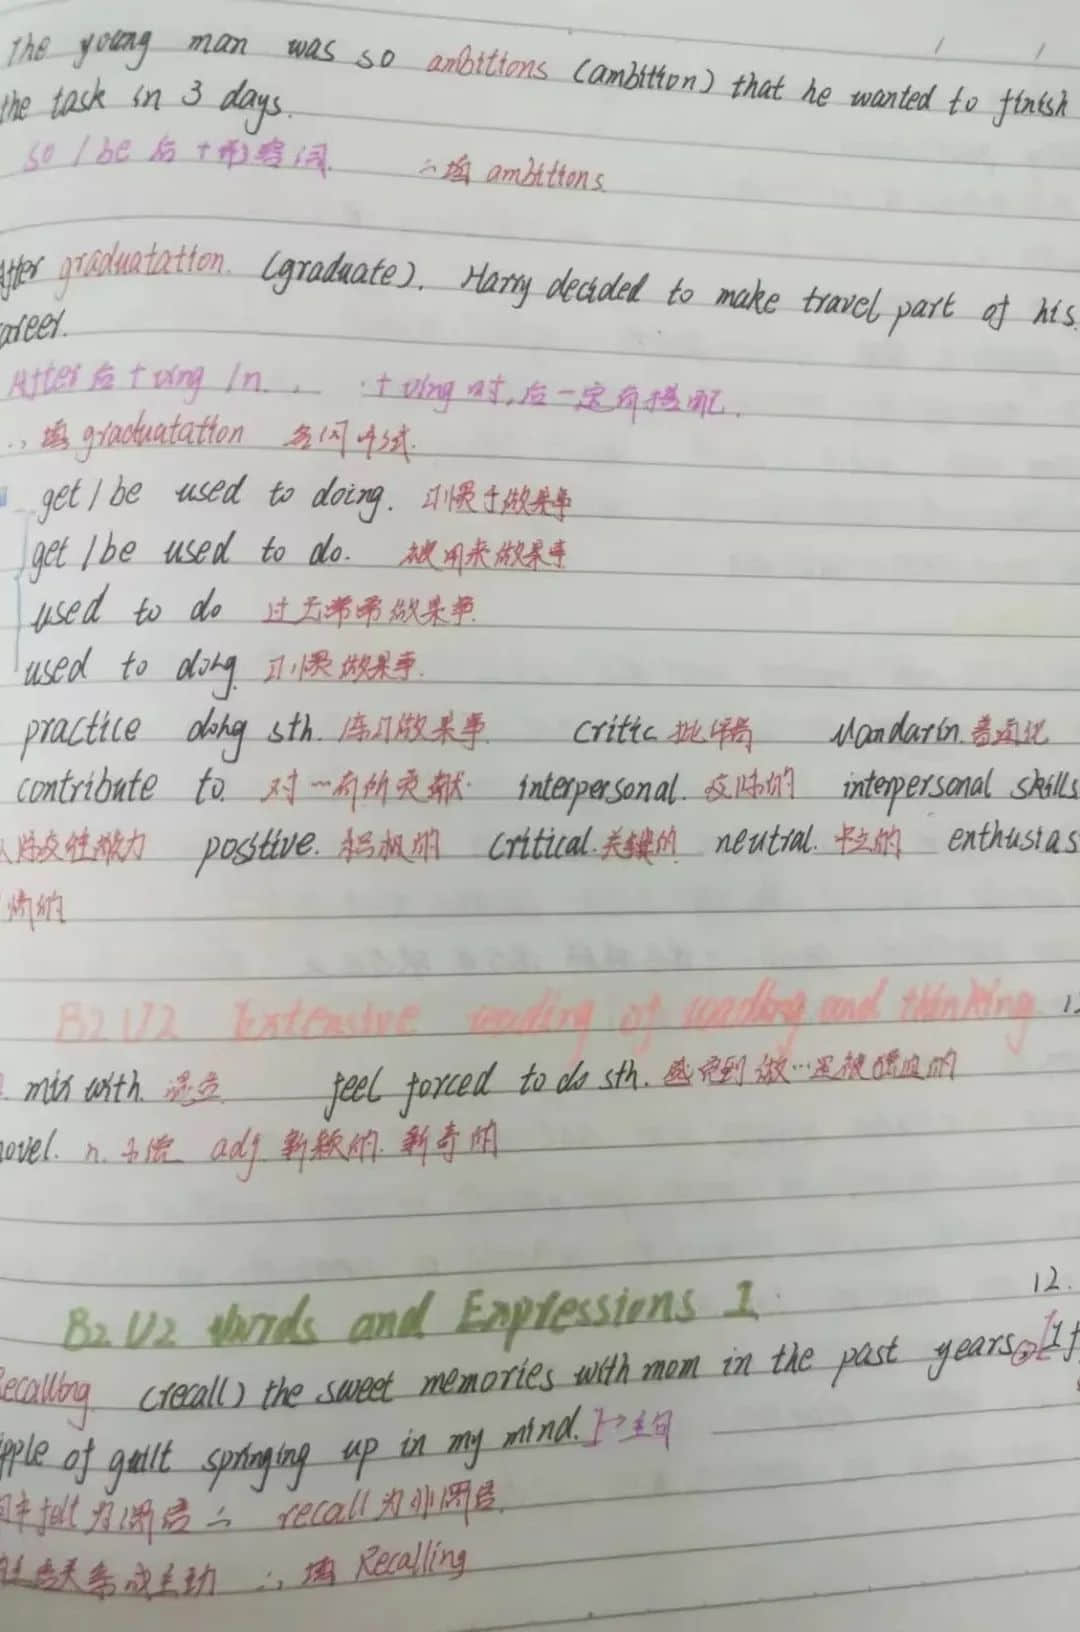 The young man was so ambitions (ambition) that he wanted to finish
the task in 3 days.
so / be 后 + 形容词. ∴填 ambitions.
After graduatation. (graduate). Harry decided to make travel part of his
career.
After 后 + ving / n. + ving 时, 后一定有搭配.
∴ 填 graduatation 名词形式.
get / be used to doing. 习惯于做某事
get / be used to do. 被用来做某事
used to do 过去常常做某事.
used to doing. 习惯做某事.
practice doing sth. 练习做某事 critic 批评 Mandarin. 普通话
contribute to. 对…有所贡献. interpersonal. 交际的 interpersonal skills
人际交往能力 positive. 积极的 critical. 关键的 neutral. 中立的 enthusias
情的
B2 U2 Extensive reading of reading and thinking 1
mix with. 混 feel forced to do sth. 感觉到做…是被强迫的
novel. n. 小说 adj. 新颖的. 新奇的
12.
B2 U2 Words and Expressions 1.
Recalling (recall) the sweet memories with mom in the past years, ② [I f
ipple of guilt springing up in my mind. ]→主句
felt 为谓语 ∴ recall 为非谓语.
关系成主动 ∴ 填 Recalling